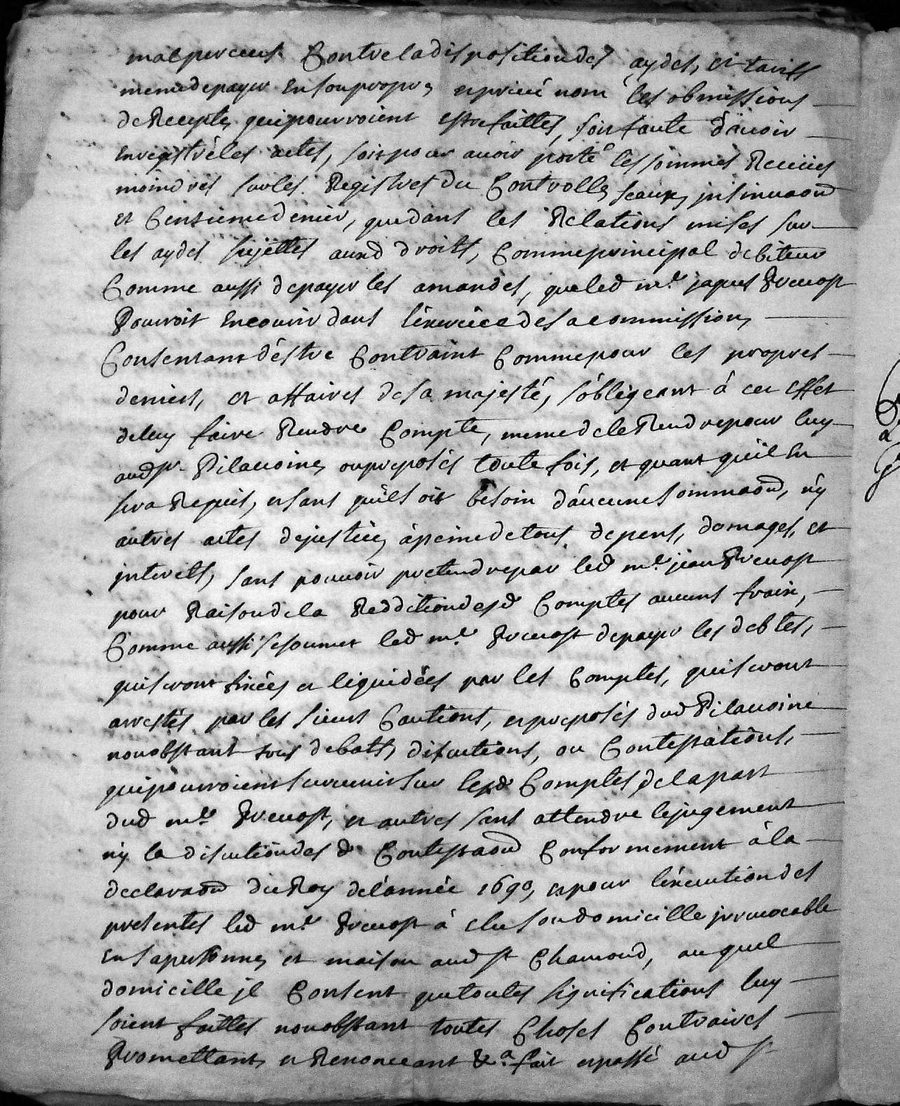 mal perceus Contre la disposition des aydes, et tarifs
meme depayer en son propre, et privé nom les obmissions
de Recepte, qui pourroient estre faittes, soit faute d'auoir
enregistré les actes, soit pour auoir porté les sommes Receües
moindres sur les Registres du Controlle, seaux, jnsinuaōn
et Centieme denier, que dans les Relations mises sur
les aydes sujettes auxd droits, Comme principal debiteur
Comme aussi depayer les amandes, que led me. jaques Preuost
Pourroit encourir dans l'exercice de sa commission,
Consentant d'estre Contraint Comme pour les propres
deniers, et affaires de sa majesté, s'oblégeant à cet effet
de luy faire Rendre Compte, meme de le Rendre pour luy
aud sr. Pilauoine, ou preposés toute fois, et quant qu'il en
sera Requis, et sans qu'il soit besoin d'aucune sommaōn, n'y
autres actes de justice, à peine de tous depens, domages, et
jnterets, sans pouvoir pretendre par led me. jean Preuost
pour Raison de la Reddition desd Comptes aucuns frais,
Comme aussi se soumet led me. Preuost depayer les debtes,
qui seront fixées et liquidées par les Comptes, qui seront
arrestés par les sieurs Cautions, et preposés dud Pilauoine
nonobstant tous debats, discutions, ou Contestations,
qui pourroient suruenir sur lesd Comptes de la part
dud me. Preuost, et autres sans attendre le jugement
n'y la discution desd Contestaōns Conformement à la
declaraōn du Roy de l'année 1690, et pour l'execution des
presentes led me. Preuost à elu son domicille jrreuocable
en sa personne, et maison aud st Chamond, au quel
domicille jl Consent que toutes significations luy
soient faittes nonobstant toutes Choses Contraires
Promettant, et Renonceant &a. fait et passé aud st